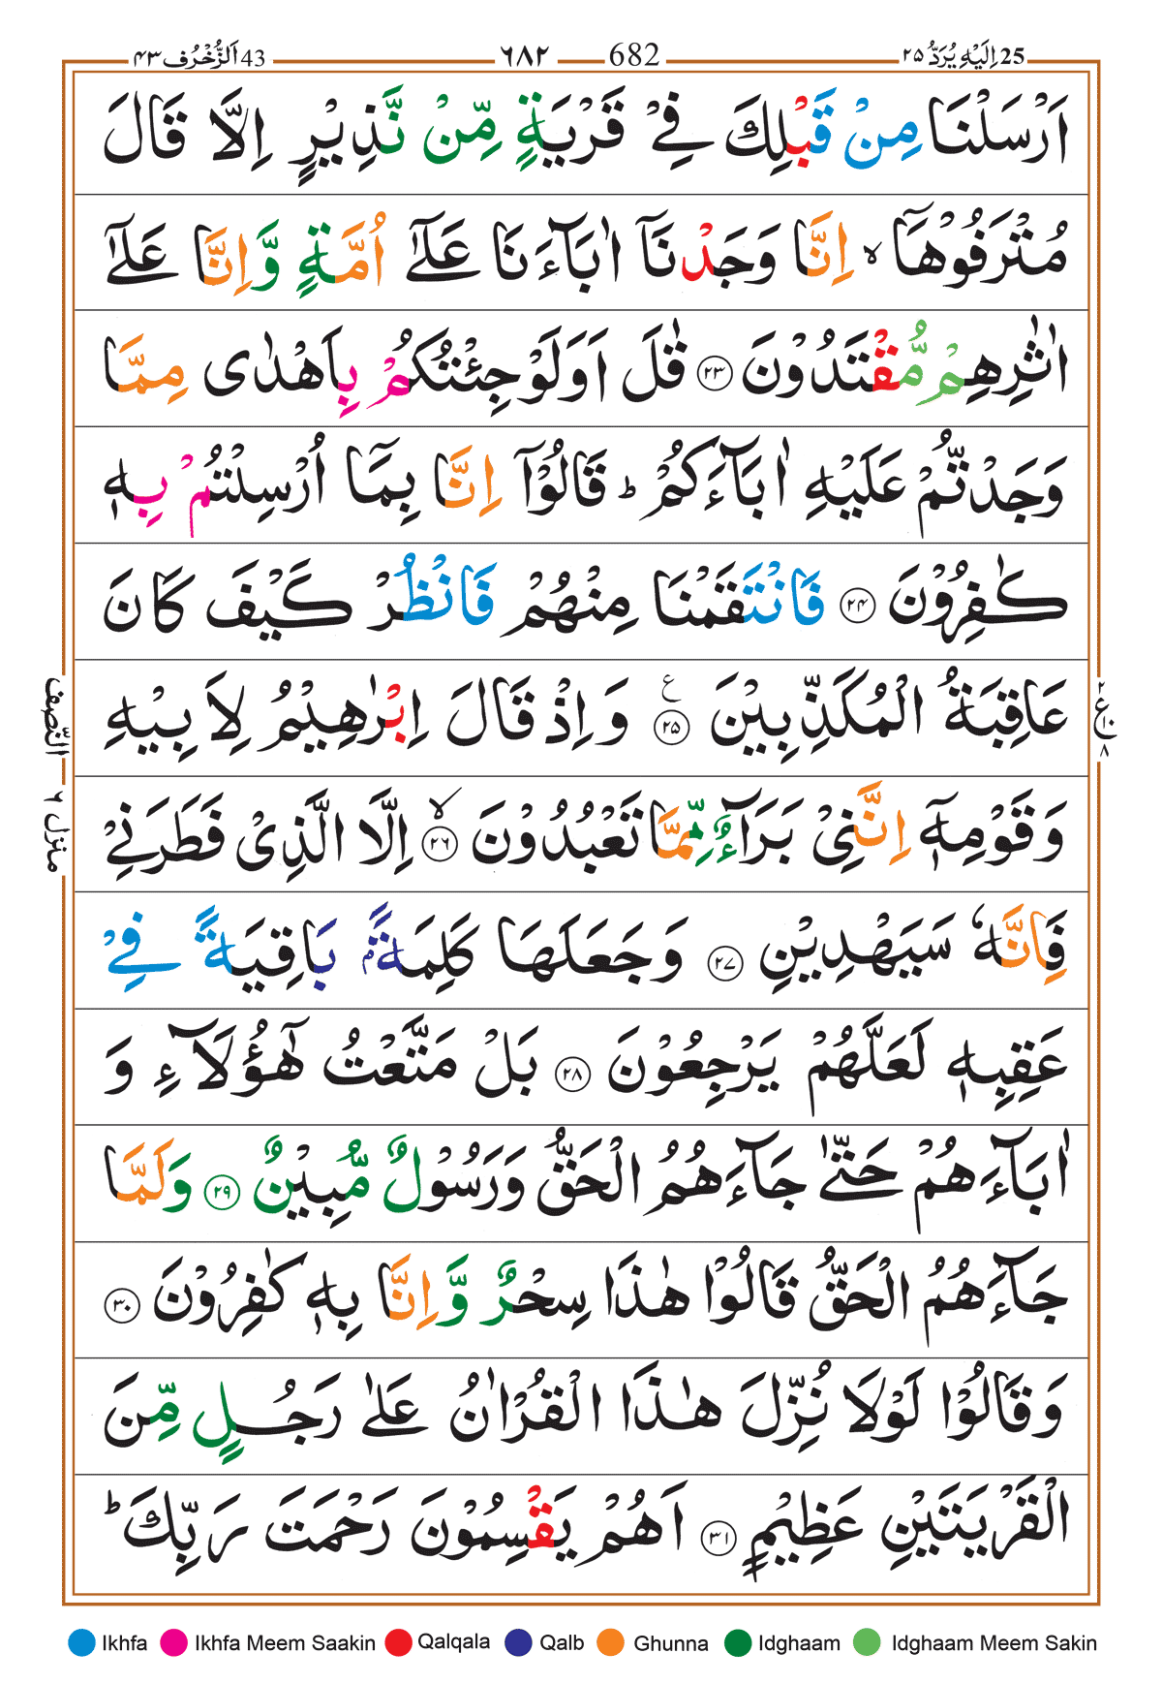 25 اِلَیْهِ یُرَدُّ ۲۵ 682 ٦٨٢ 43 اَلزُّخْرُف ۴۳
اَرْسَلْنَا مِنْ قَبْلِكَ فِیْ قَرْیَةٍ مِّنْ نَّذِیْرٍ اِلَّا قَالَ
مُتْرَفُوْهَاۤ ۙ اِنَّا وَجَدْنَاۤ اٰبَآءَنَا عَلٰۤی اُمَّةٍ وَّاِنَّا عَلٰۤی
اٰثٰرِهِمْ مُّقْتَدُوْنَ ﴿۲۳﴾ قٰلَ اَوَلَوْ جِئْتُكُمْ بِاَهْدٰی مِمَّا
وَجَدْتُّمْ عَلَیْهِ اٰبَآءَكُمْ ؕ قَالُوْۤا اِنَّا بِمَاۤ اُرْسِلْتُمْ بِهٖ
كٰفِرُوْنَ ﴿۲۴﴾ فَانْتَقَمْنَا مِنْهُمْ فَانْظُرْ كَیْفَ كَانَ
عَاقِبَةُ الْمُكَذِّبِیْنَ ﴿۲۵﴾ ع وَاِذْ قَالَ اِبْرٰهِیْمُ لِاَبِیْهِ
وَقَوْمِهٖۤ اِنَّنِیْ بَرَآءٌ مِّمَّا تَعْبُدُوْنَ ﴿۲۶﴾ ۙ اِلَّا الَّذِیْ فَطَرَنِیْ
فَاِنَّهٗ سَیَهْدِیْنِ ﴿۲۷﴾ وَجَعَلَهَا كَلِمَةًۢ بَاقِیَةً فِیْ
عَقِبِهٖ لَعَلَّهُمْ یَرْجِعُوْنَ ﴿۲۸﴾ بَلْ مَتَّعْتُ هٰۤؤُلَآءِ وَ
اٰبَآءَهُمْ حَتّٰی جَآءَهُمُ الْحَقُّ وَرَسُوْلٌ مُّبِیْنٌ ﴿۲۹﴾ وَلَمَّا
جَآءَهُمُ الْحَقُّ قَالُوْا هٰذَا سِحْرٌ وَّاِنَّا بِهٖ كٰفِرُوْنَ ﴿۳۰﴾
وَقَالُوْا لَوْلَا نُزِّلَ هٰذَا الْقُرْاٰنُ عَلٰی رَجُلٍ مِّنَ
الْقَرْیَتَیْنِ عَظِیْمٍ ﴿۳۱﴾ اَهُمْ یَقْسِمُوْنَ رَحْمَتَ رَبِّكَ ؕ
النّصف
منزل ٦
۲ ع ۱۰ ۸
Ikhfa Ikhfa Meem Saakin Qalqala Qalb Ghunna Idghaam Idghaam Meem Sakin